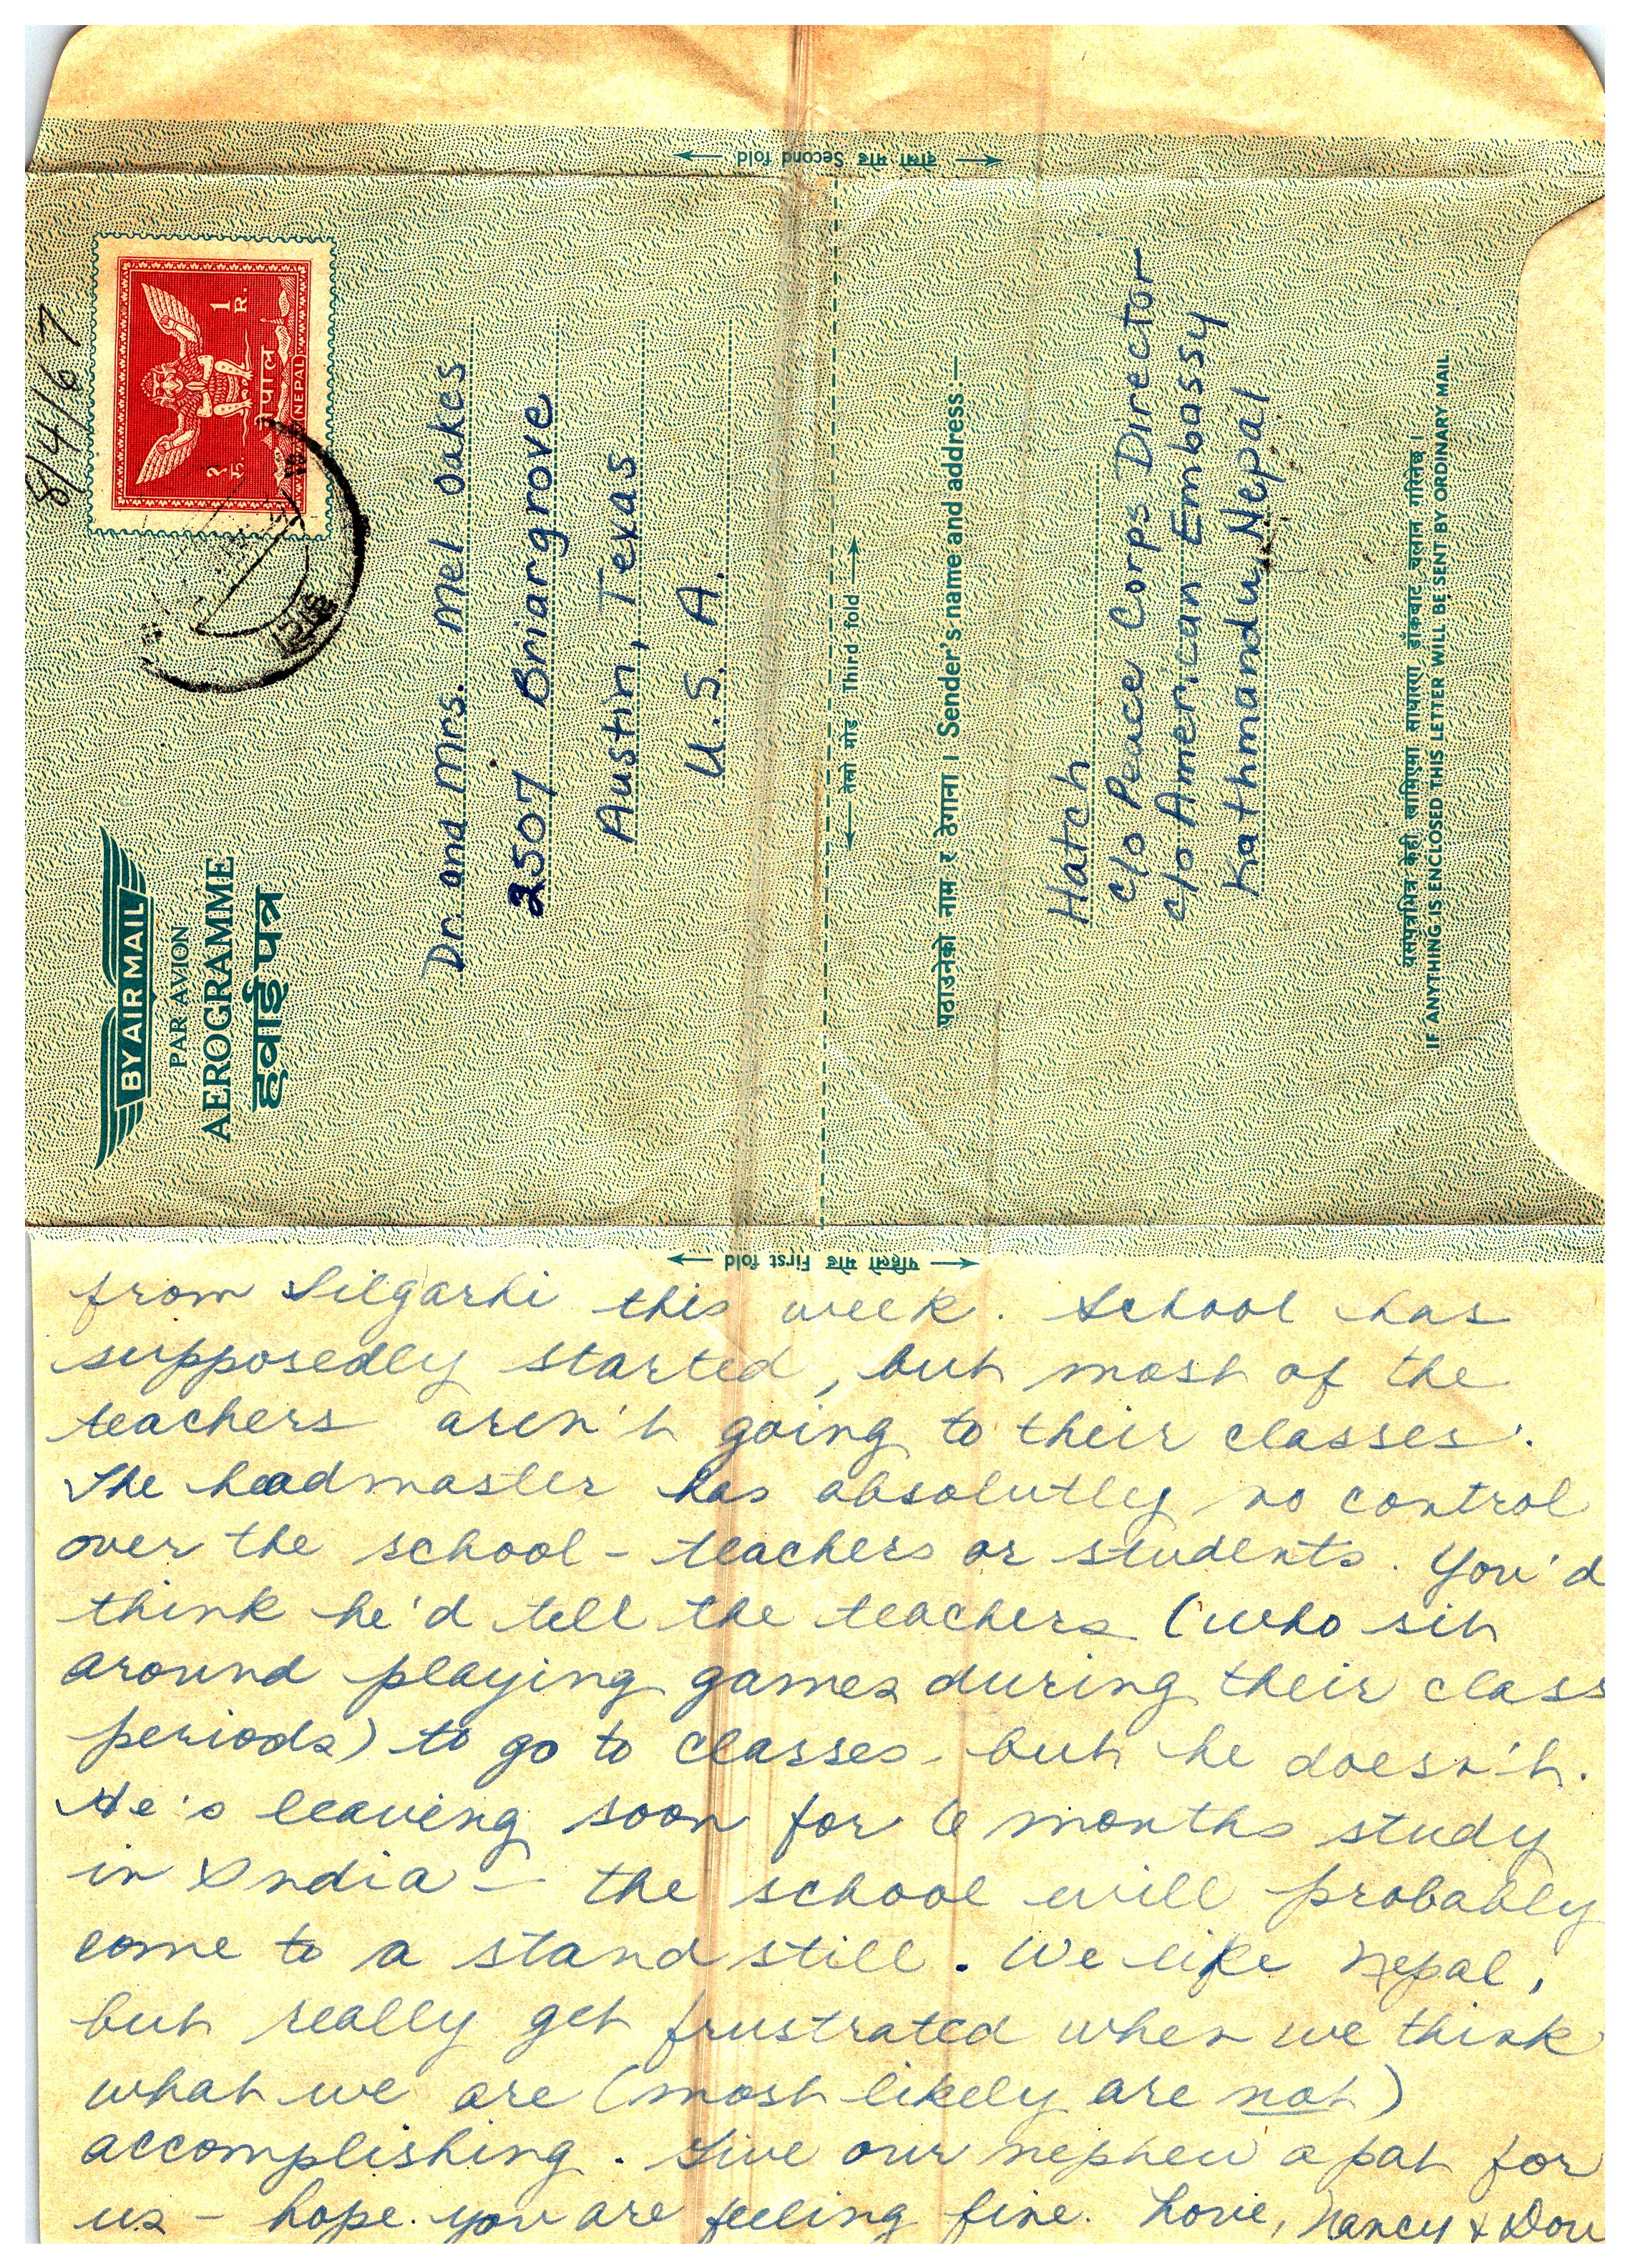 दोस्रो मोड Second fold
8/4/67
१ रु.
1 R.
नेपाल
(NEPAL)
BY AIR MAIL
PAR AVION
AEROGRAMME
हवाईपत्र
Dr. and Mrs. Mel Oakes
2507 Briargrove
Austin, Texas
U. S. A.
तेस्रो मोड Third fold
पठाउनेको नाम र ठेगाना । Sender's name and address:—
Hatch
c/o Peace Corps Director
c/o American Embassy
Kathmandu, Nepal
यसपत्रभित्र केही खामिएमा साधारण डाँकबाट चलान गरिनेछ ।
IF ANYTHING IS ENCLOSED THIS LETTER WILL BE SENT BY ORDINARY MAIL
पहिलो मोड First fold
from Silgarhi this week. School has
supposedly started, but most of the
teachers aren't going to their classes.
The headmaster has absolutley no control
over the school - teachers or students. You'd
think he'd tell the teachers (who sit
around playing games during their class
periods) to go to classes - but he doesn't.
He's leaving soon for 6 months study
in India - the school will probably
come to a stand still. We like Nepal,
but really get frustrated when we think
what we are (most likely are not)
accomplishing. Give our nephew a pat for
us - hope you are feeling fine. Love, Nancy & Dou